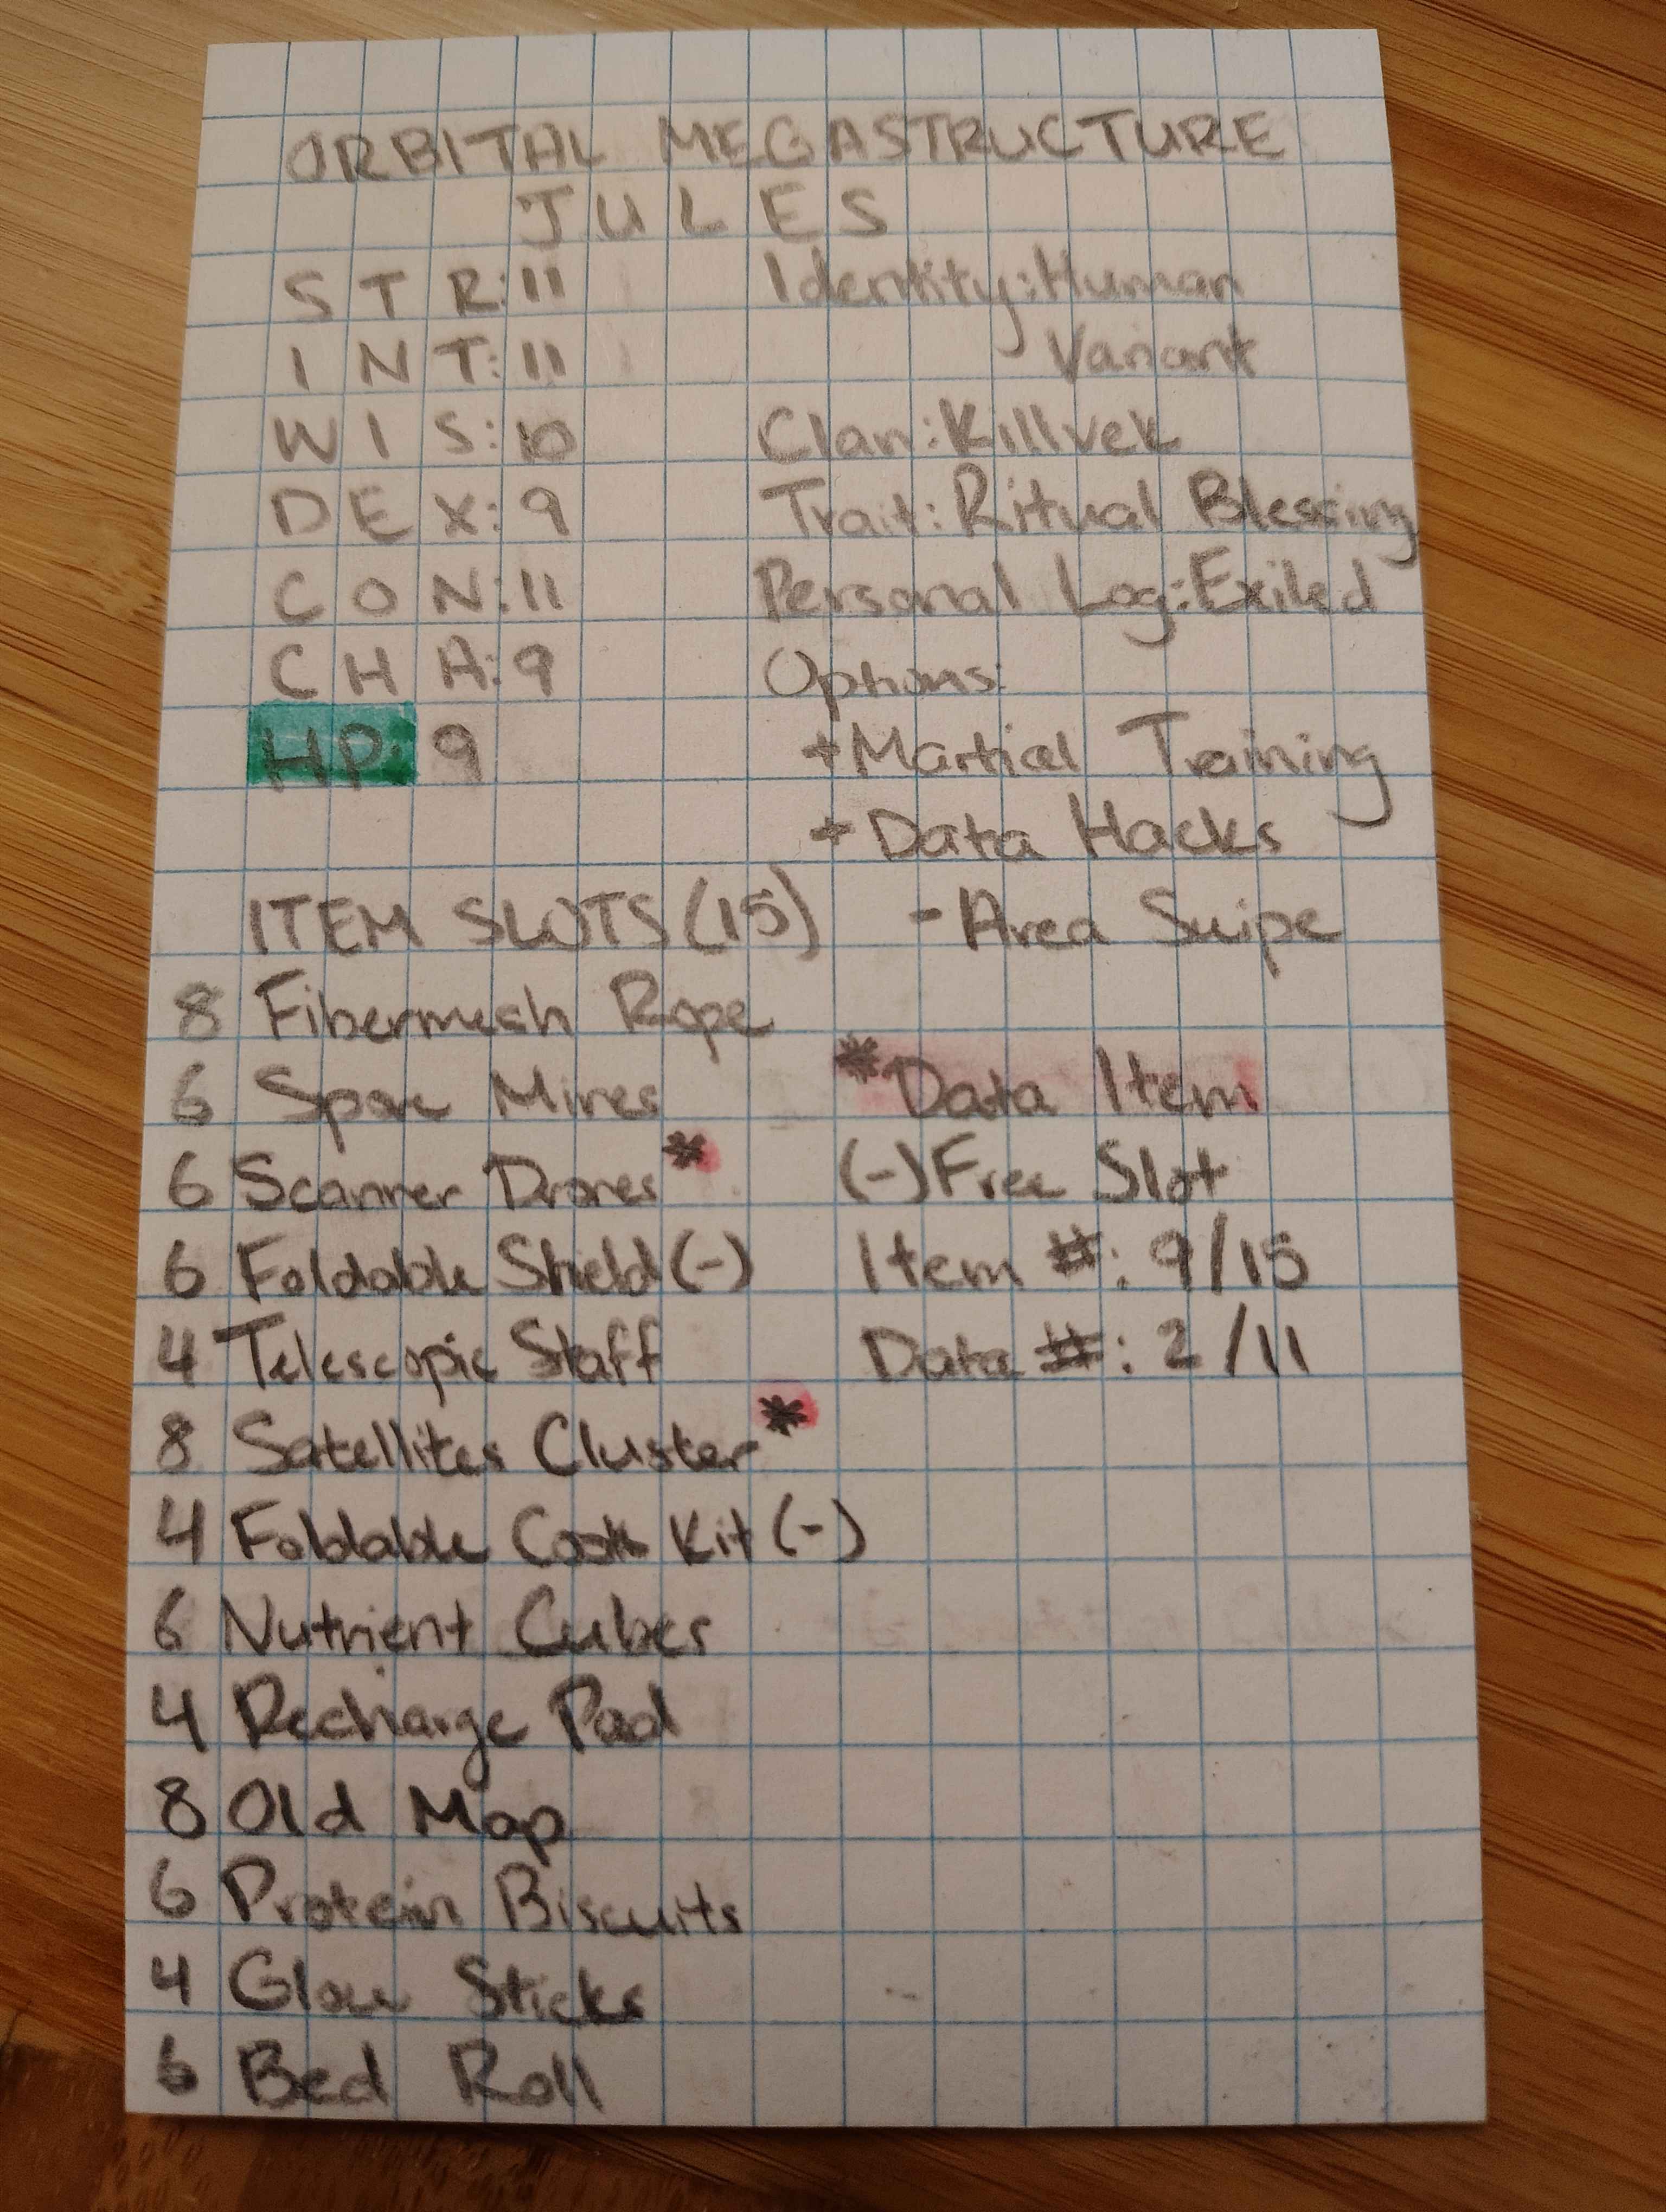 ORBITAL MEGASTRUCTURE
JULES
STR:11
INT:11
WIS:10
DEX:9
CON:11
CHA:9
HP:9
Identity:Human
Variant
Clan:Killvek
Trait:Ritual Blessing
Personal Log:Exiled
Options:
+Martial Training
+Data Hacks
-Area Swipe
ITEM SLOTS(15)
8 Fibermesh Rope
6 Spore Mines
6 Scanner Drones*
6 Foldable Shield(-)
4 Telescopic Staff
8 Satellites Cluster*
4 Foldable Cook Kit(-)
6 Nutrient Cubes
4 Recharge Pad
8 Old Map
6 Protein Biscuits
4 Glow Sticks
6 Bed Roll
*Data Item
(-)Free Slot
Item #: 9/15
Data #: 2/11